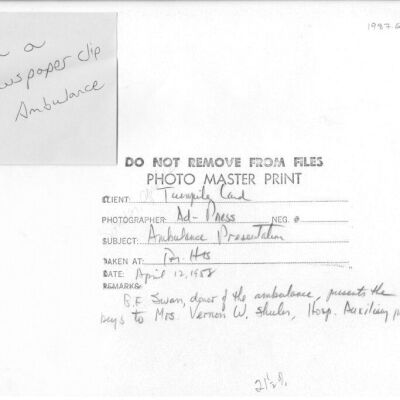 a
newspaper clip
Ambulance
1987.
DO NOT REMOVE FROM FILES
PHOTO MASTER PRINT
CLIENT: Turnpike Land
PHOTOGRAPHER: Ad-Press NEG. #
SUBJECT: Ambulance Presentation
TAKEN AT: Pr. Hts
DATE: April 12, 1958
REMARKS:
B.F. Swan, donor of the ambulance, presents the
keys to Mrs. Vernon W. Shuler, Hosp. Auxiliary